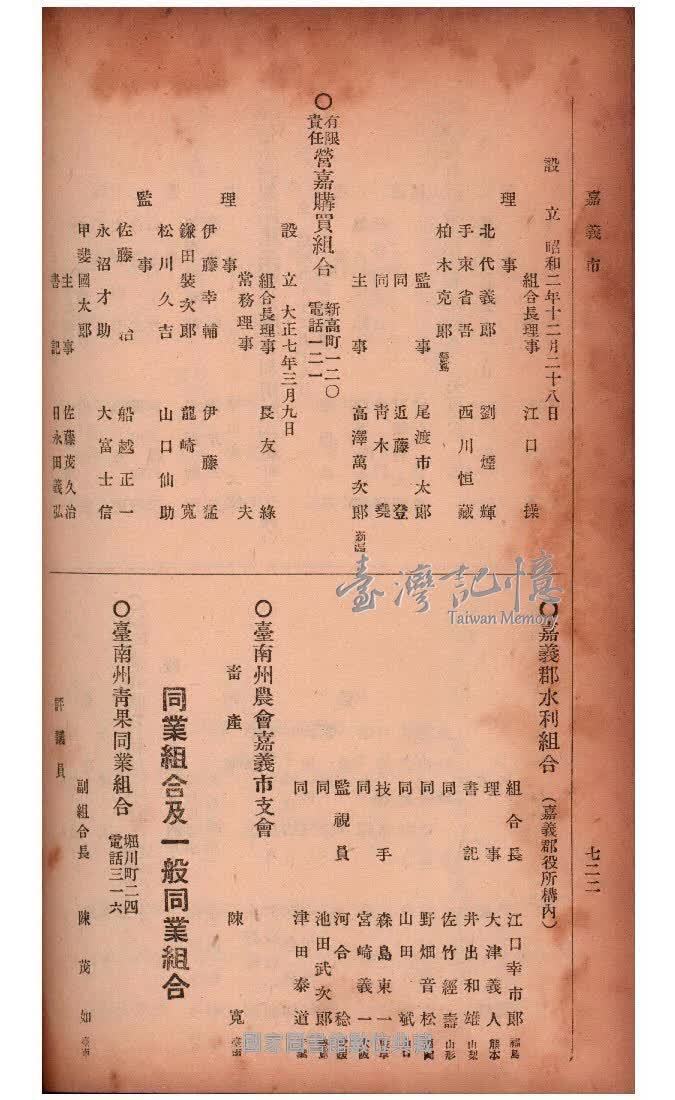 嘉義市
七二二
設立 昭和二年十二月二十八日
組合長理事 江口操
理事
北代義郎 劉煙輝
手束省吾 西川恒藏
柏木克郎
監事 尾渡市太郎
同 近藤登
同 青木堯
主事 高澤萬次郎 新潟
○有限責任營嘉購買組合 新高町一二〇 電話一二一
設立 大正七年三月九日
組合長理事 長友綠
常務理事 夫
理事
伊藤幸輔 伊藤猛
鎌田裝次郎 龍崎寬
松川久吉 山口仙助
監事
佐藤治 船越正一
永沼才助 大富士信
甲斐國太郎
主事 佐藤茂久治
書記 日永田義弘
○嘉義郡水利組合(嘉義郡役所構內)
組合長 江口幸市郎 福島
理事 大津義人 熊本
書記 井出和雄 山梨
同 佐竹經壽 山形
同 野畑音松
同 山田斌
技手 森島東一
同 宮崎義一 大阪
監視員 河合稔
同 池田武次郎
同 津田泰道
○臺南州農會嘉義市支會
畜產 陳寬 臺南
同業組合及一般同業組合
○臺南州青果同業組合 堀川町二四 電話三一六
副組合長 陳茂如 臺南
評議員
臺灣記憶
Taiwan Memory
國家圖書館數位典藏